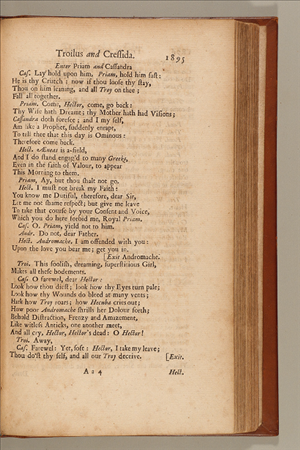 Troilus and Cressida.
1895
Enter Priam and Cassandra
Cas. Lay hold upon him, Priam, hold him fast:
He is thy Crutch; now if thou loose thy stay,
Thou on him leaning, and all Troy on thee;
Fall all together.
Priam. Come, Hector, come, go back:
Thy Wife hath Dreamt; thy Mother hath had Visions;
Cassandra doth foresee; and I my self,
Am like a Prophet, suddenly enrapt,
To tell thee that this day is Ominous:
Therefore come back.
Hect. Æneas is a-field,
And I do stand engag'd to many Greeks,
Even in the faith of Valour, to appear
This Morning to them.
Priam. Ay, but thou shalt not go.
Hect. I must not break my Faith:
You know me Dutiful, therefore, dear Sir,
Let me not shame respect; but give me leave
To take that course by your Consent and Voice,
Which you do here forbid me, Royal Priam.
Cas. O, Priam, yield not to him.
Andr. Do not, dear Father.
Hect. Andromache, I am offended with you:
Upon the love you bear me; get you in.
[Exit Andromache.
Troi. This foolish, dreaming, superstitious Girl,
Makes all these bodements.
Cas. O farewel, dear Hector:
Look how thou diest; look how thy Eyes turn pale;
Look how thy Wounds do bleed at many vents;
Hark how Troy roars; how Hecuba cries out;
How poor Andromache shrills her Dolour forth;
Behold Distraction, Frenzy and Amazement,
Like witless Anticks, one another meet,
And all cry, Hector, Hector's dead: O Hector!
Troi. Away,
Cas. Farewel: Yet, soft: Hector, I take my leave;
Thou do'st thy self, and all our Troy deceive. [Exit.
A a 4 Hect.